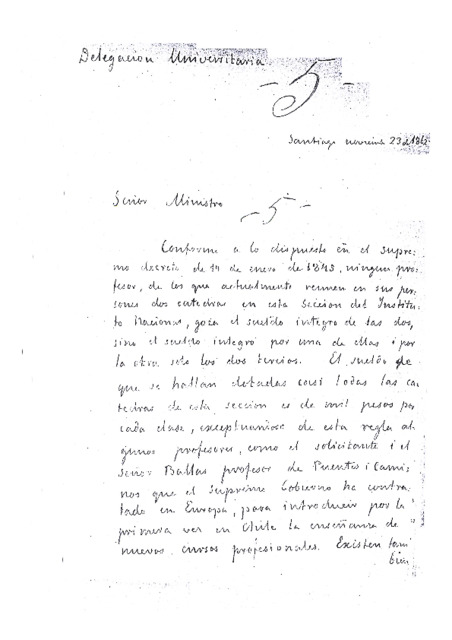 Delegacion Universitaria
-5-
Santiago noviembre 23 de 186
Señor Ministro
-5-
Conforme a lo dispuesto en el supre-
mo decreto de 14 de enero de 1845, ningun pro-
fesor, de los que actualmente reunen en sus per-
sonas dos catedras en esta Seccion del Institu-
to Nacional, goza el sueldo integro de las dos,
sino el sueldo integro por una de ellas i por
la otra solo los dos tercios. El sueldo de
que se hallan dotadas casi todas las ca-
tedras de esta seccion es de mil pesos por
cada clase, exceptuandose de esta regla al-
gunos profesores, como el solicitante i el
señor Ballas profesor de Puentes i Cami-
nos que el Supremo Gobierno ha contra-
tado en Europa, para introducir por la
primera vez en Chile la enseñanza de
nuevos cursos profesionales. Existen tam
bien